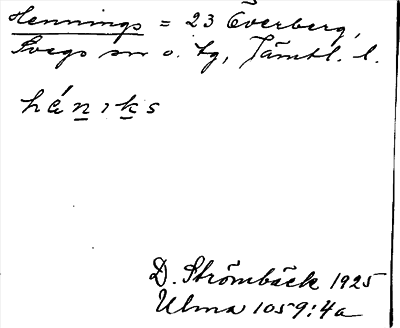 Hennings = 23 Överberg,
Svegs sn o. tg, Jämtl. l.
hénıks
D. Strömbäck 1925
Ulma 1059:4a